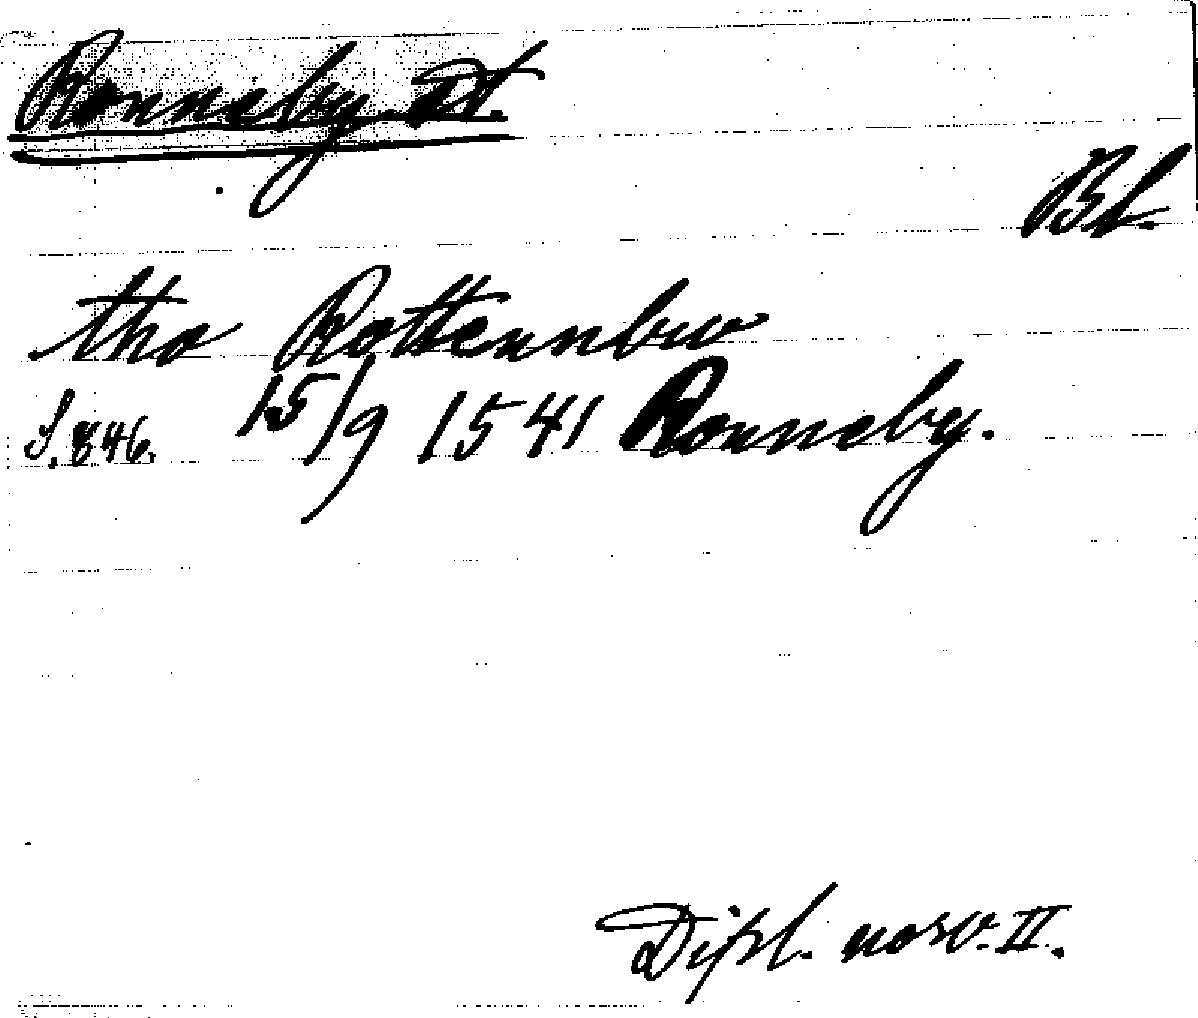 Ronneby St.
Bl.
tho Rottennbw
S. 846. 15/9 1541 Ronneby.
Dipl. norv. II.